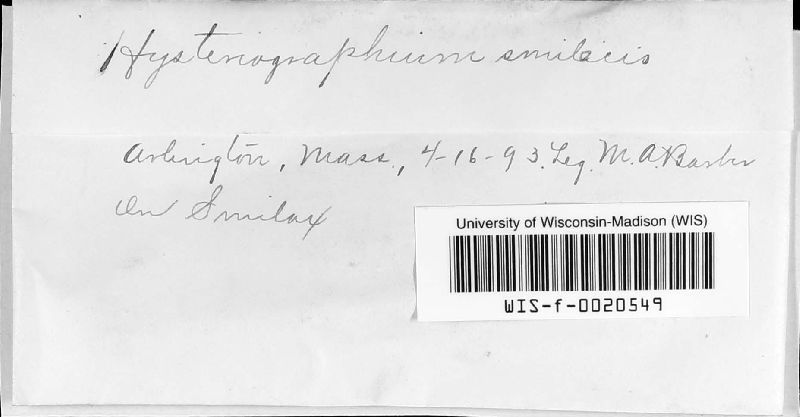 Hysteriographium smilacis
Arlington, Mass., 4-16-93. Leg. M.A. Barber
On Smilax
University of Wisconsin-Madison (WIS)
WIS-f-0020549